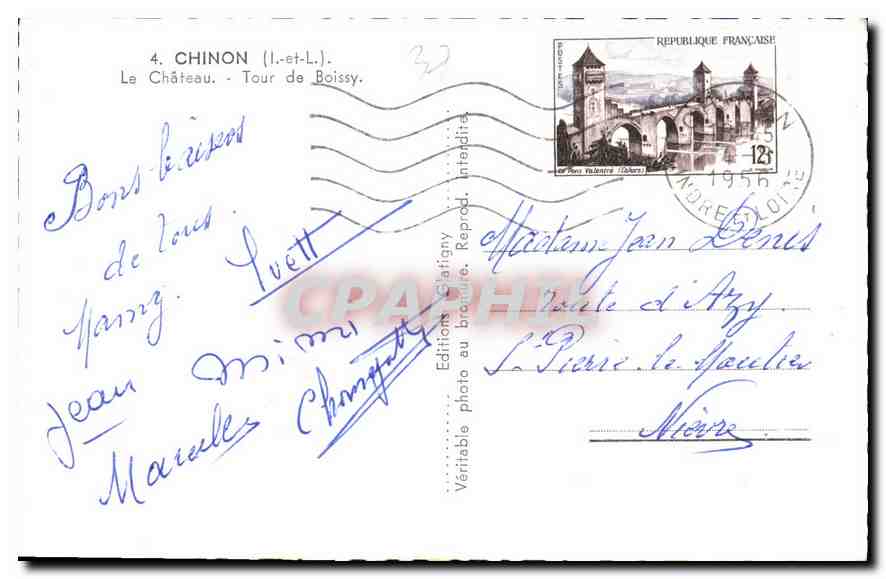 4. CHINON (I.-et-L.).
Le Château. - Tour de Boissy.
32
Bons baisers
de tous.
Mamy. Yvett
Jean Mimi
Marcelle
Editions Glatigny
Véritable photo au bromure. Reprod. interdite.
REPUBLIQUE FRANÇAISE
POSTES
12f
Le Pont Valentré (Cahors)
1956
INDRE ET LOIRE
Madame Jean Denis
route d'Azy.
St Pierre-le-Moutier
Nièvre
CPAPHIL